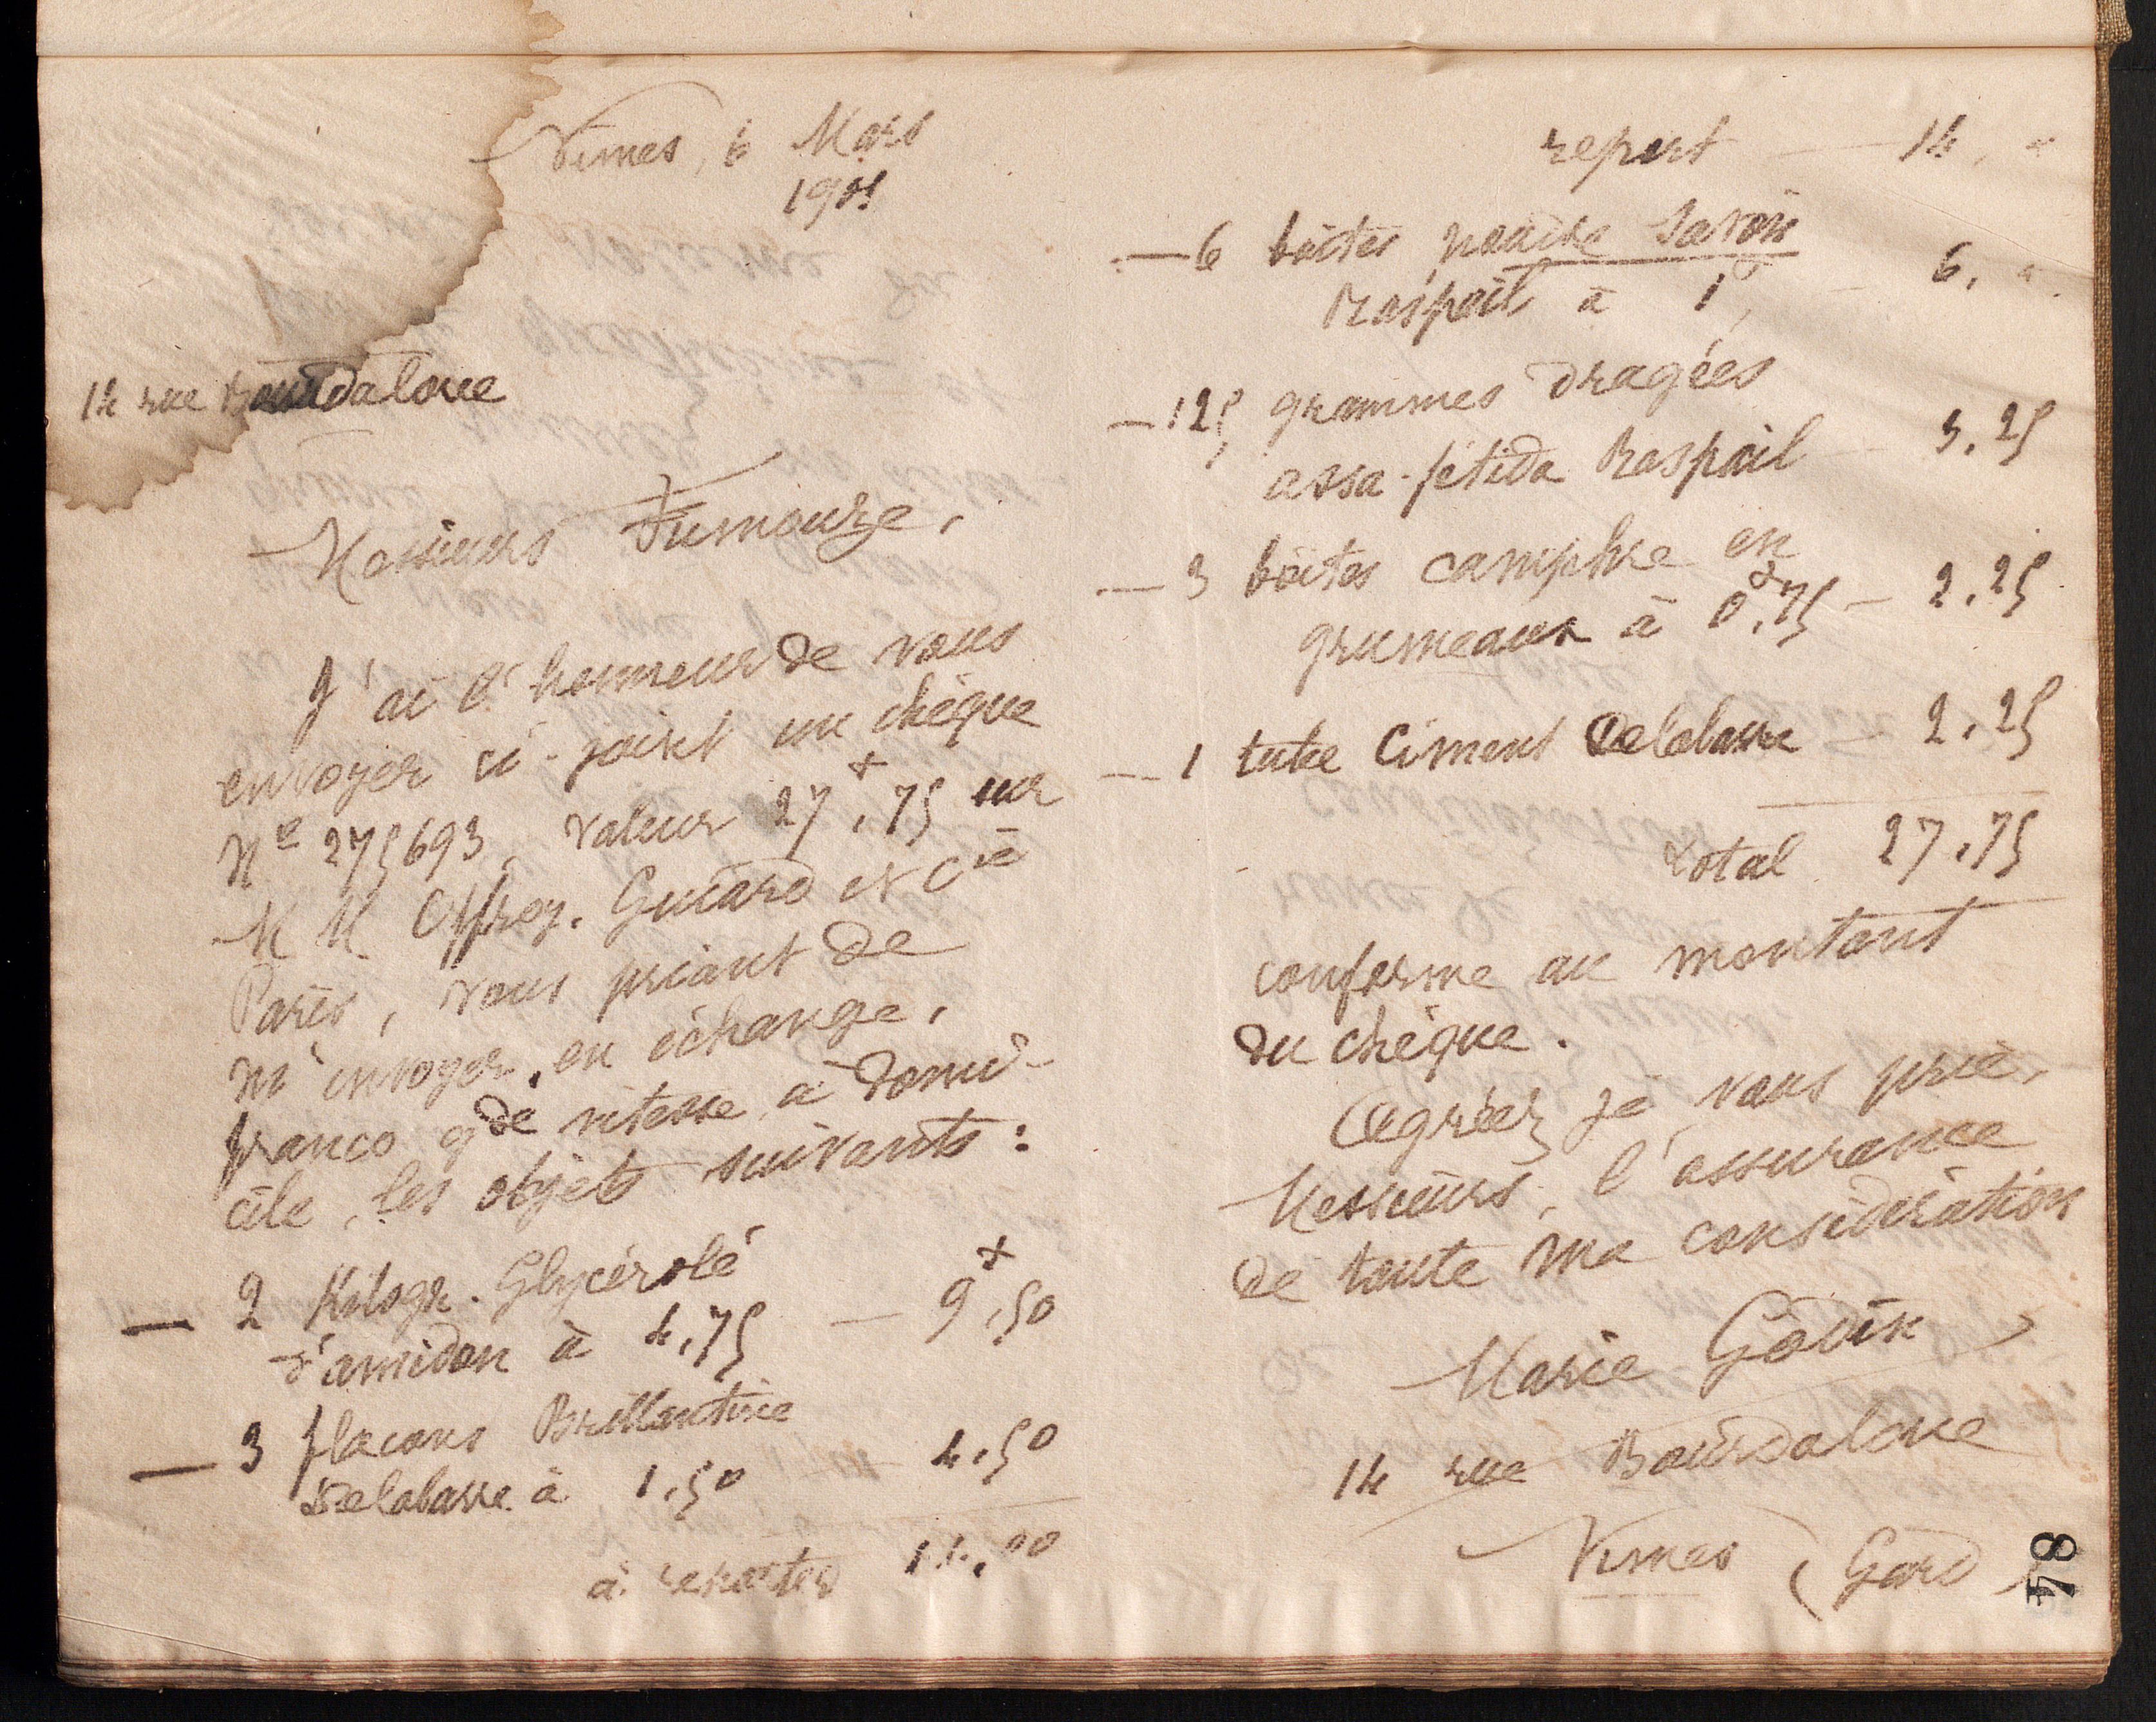 Nimes, 6 Mars
1901
14 rue Bourdaloue
Messieurs Fumouze,
J'ai l'honneur de vous
envoyer ci-joint un chèque
Nº 275693, valeur 27f,75 sur
M M Offroy. Guiard et Cie
Paris, vous priant de
m'envoyer, en échange,
franco gde vitesse, à domi-
cile, les objets suivants :
— 2 Kilogr. Glycérolé
d'amidon à 4,75 — 9f,50
— 3 flacons Brillantine
Delabarre à 1,50 4,50
à reporter 14,00
report — 14, "
— 6 boîtes poudre Savon
Raspail à 1f, — 6, "
— 125 grammes dragées
assa-fétida Raspail — 3,25
— 3 boîtes camphre en
grumeaux à 0f,75 — 2,25
— 1 tube Ciment Delabarre — 2,25
total 27,75
conforme au montant
du chèque.
Agréez je vous prie,
Messieurs, l'assurance
de toute ma considération
Marie Godin
14 rue Bourdaloue
Nimes (Gard)